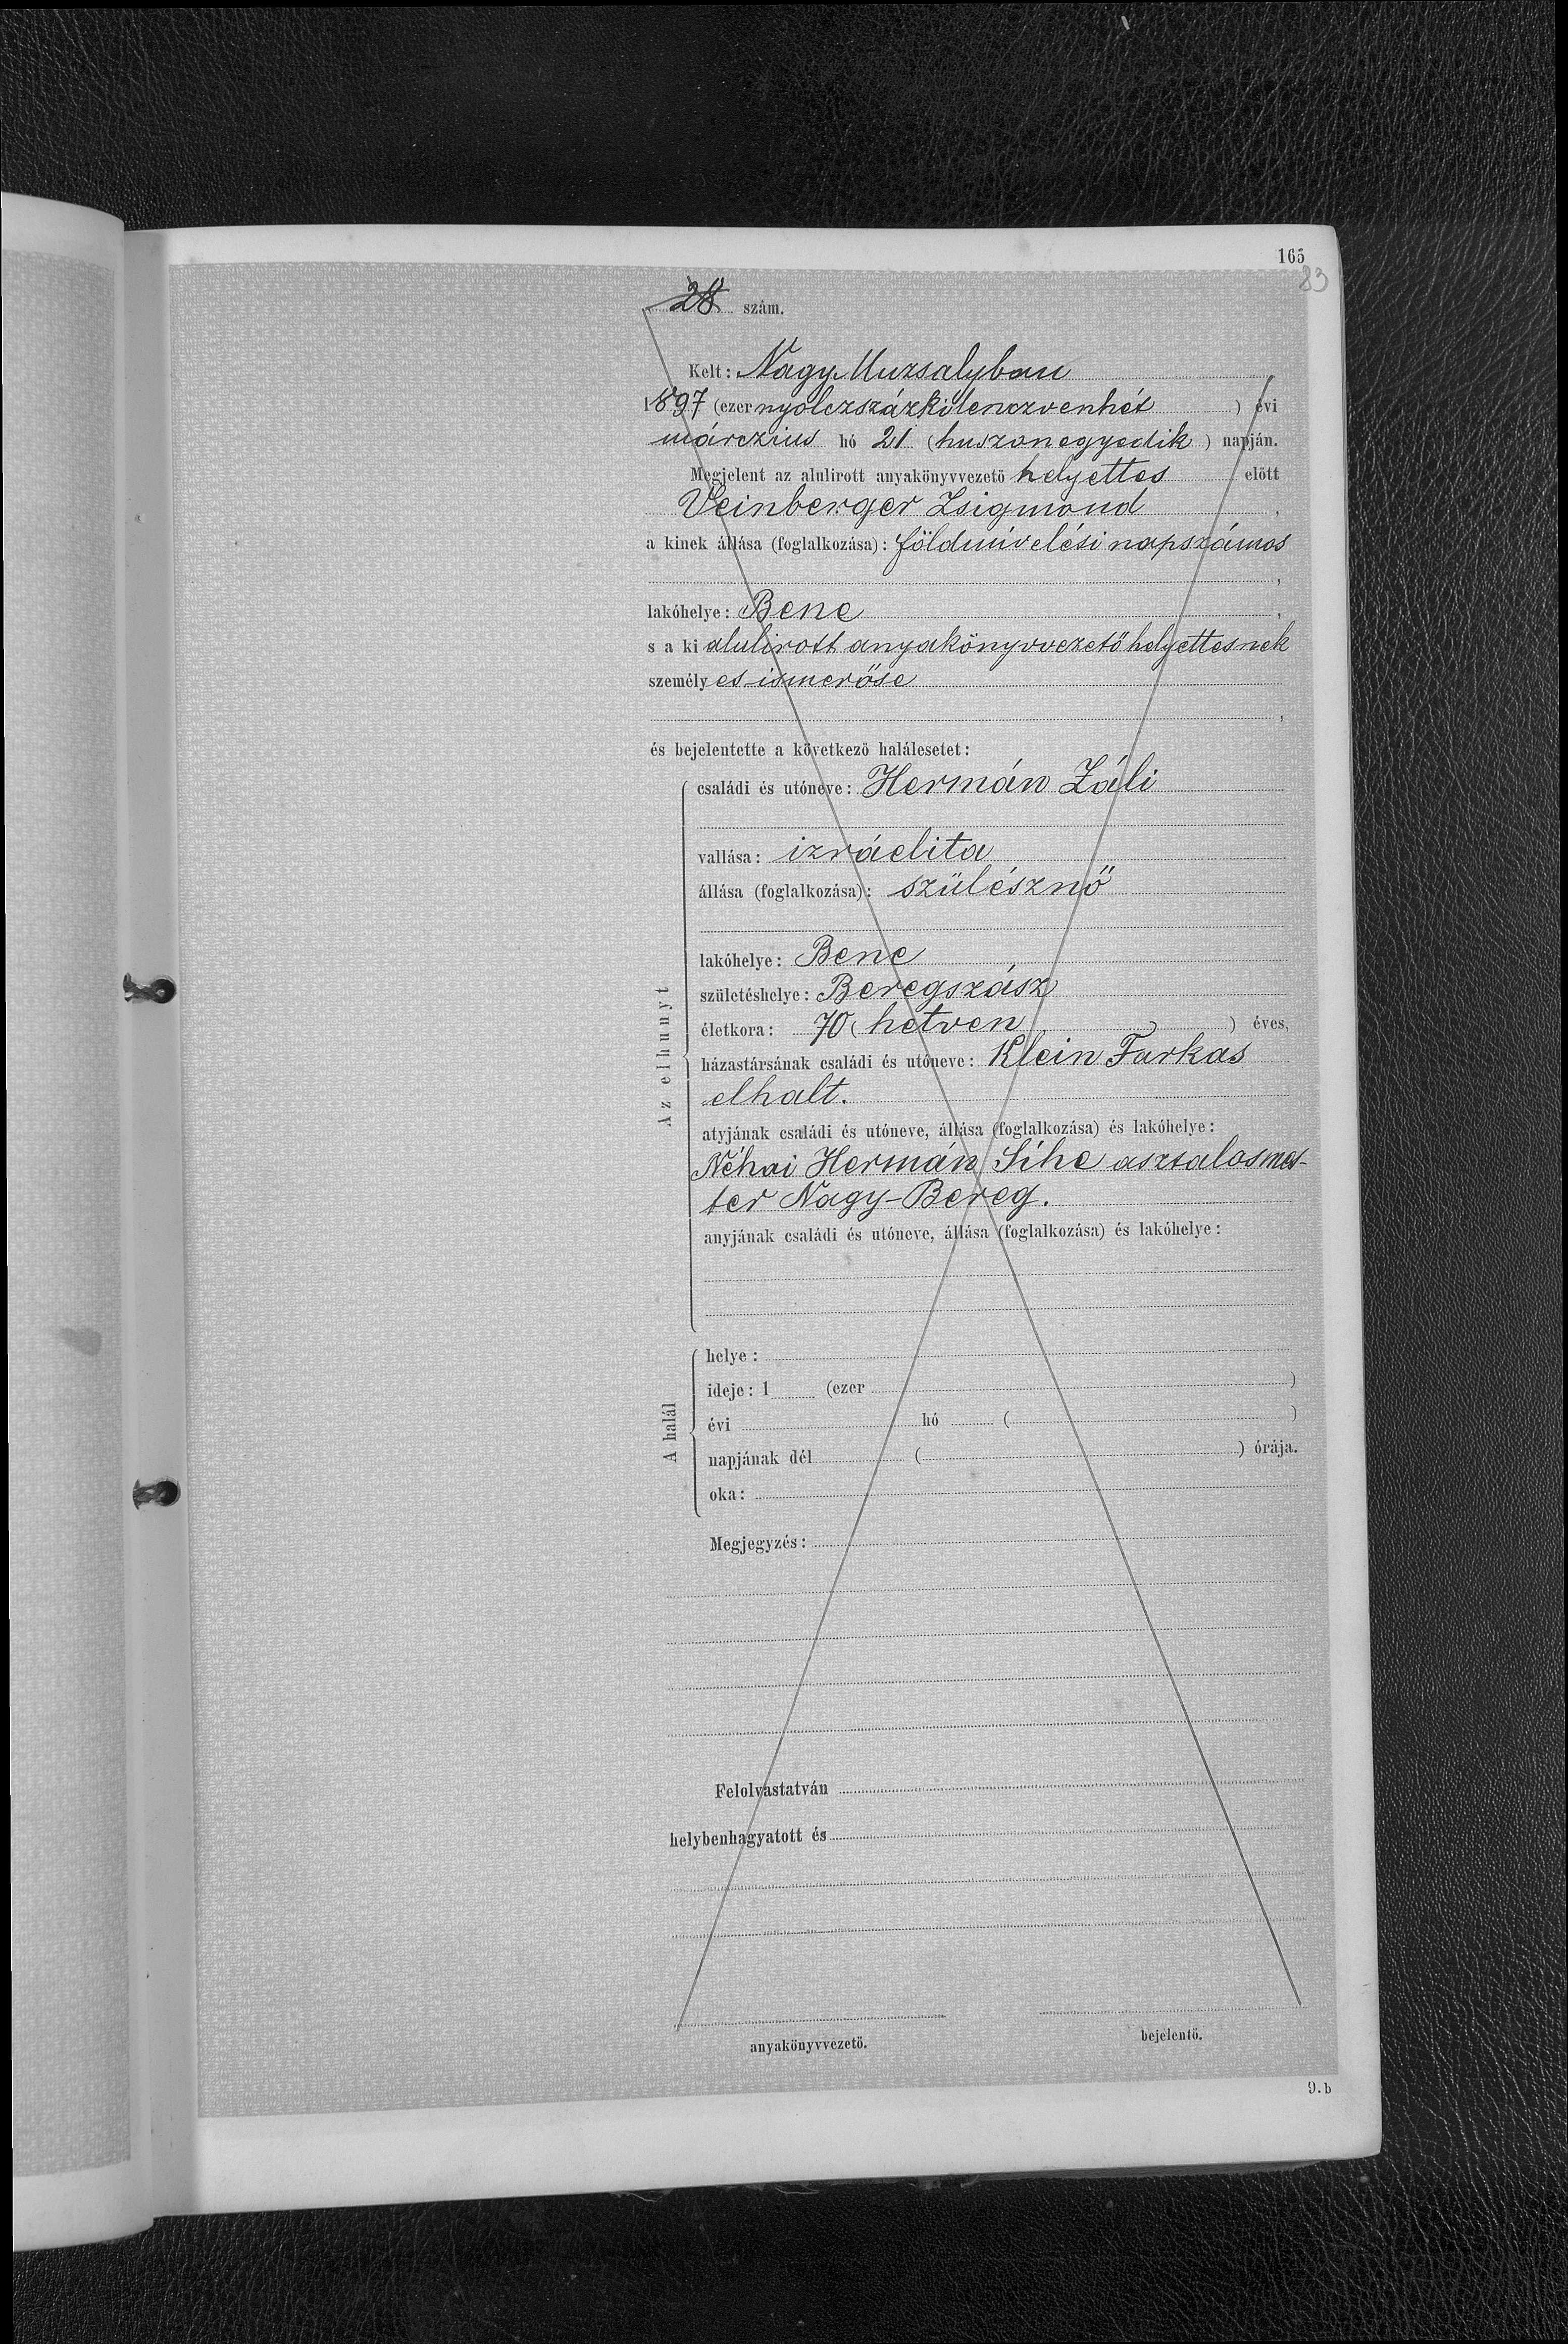 165
83
28 szám.
Kelt: Nagy Muzsalyban
1897 (ezer nyolczszázkilenczvenhét ) évi
márczius hó 21 (huszonegyedik ) napján.
Megjelent az alulirott anyakönyvvezető helyettes előtt
Veinberger Zsigmond ,
a kinek állása (foglalkozása): földmívelési napszámos
,
lakóhelye: Bene ,
s a ki alulirott anyakönyvvezető helyettesnek
személyes ismerőse
,
és bejelentette a következő halálesetet:
Az elhunyt
családi és utóneve: Hermán Záli
vallása: izráelita
állása (foglalkozása): szülésznő
lakóhelye: Bene
születéshelye: Beregszász
életkora: 70 ( hetven ) éves,
házastársának családi és utóneve: Klein Farkas
elhalt.
atyjának családi és utóneve, állása (foglalkozása) és lakóhelye:
Néhai Hermán Sihe asztalosmes-
ter Nagy-Bereg.
anyjának családi és utóneve, állása (foglalkozása) és lakóhelye:
A halál
helye:
ideje: 1 (ezer )
évi hó ( )
napjának dél ( ) órája.
oka:
Megjegyzés:
Felolvastatván
helybenhagyatott és
anyakönyvvezető. bejelentő.
9.b